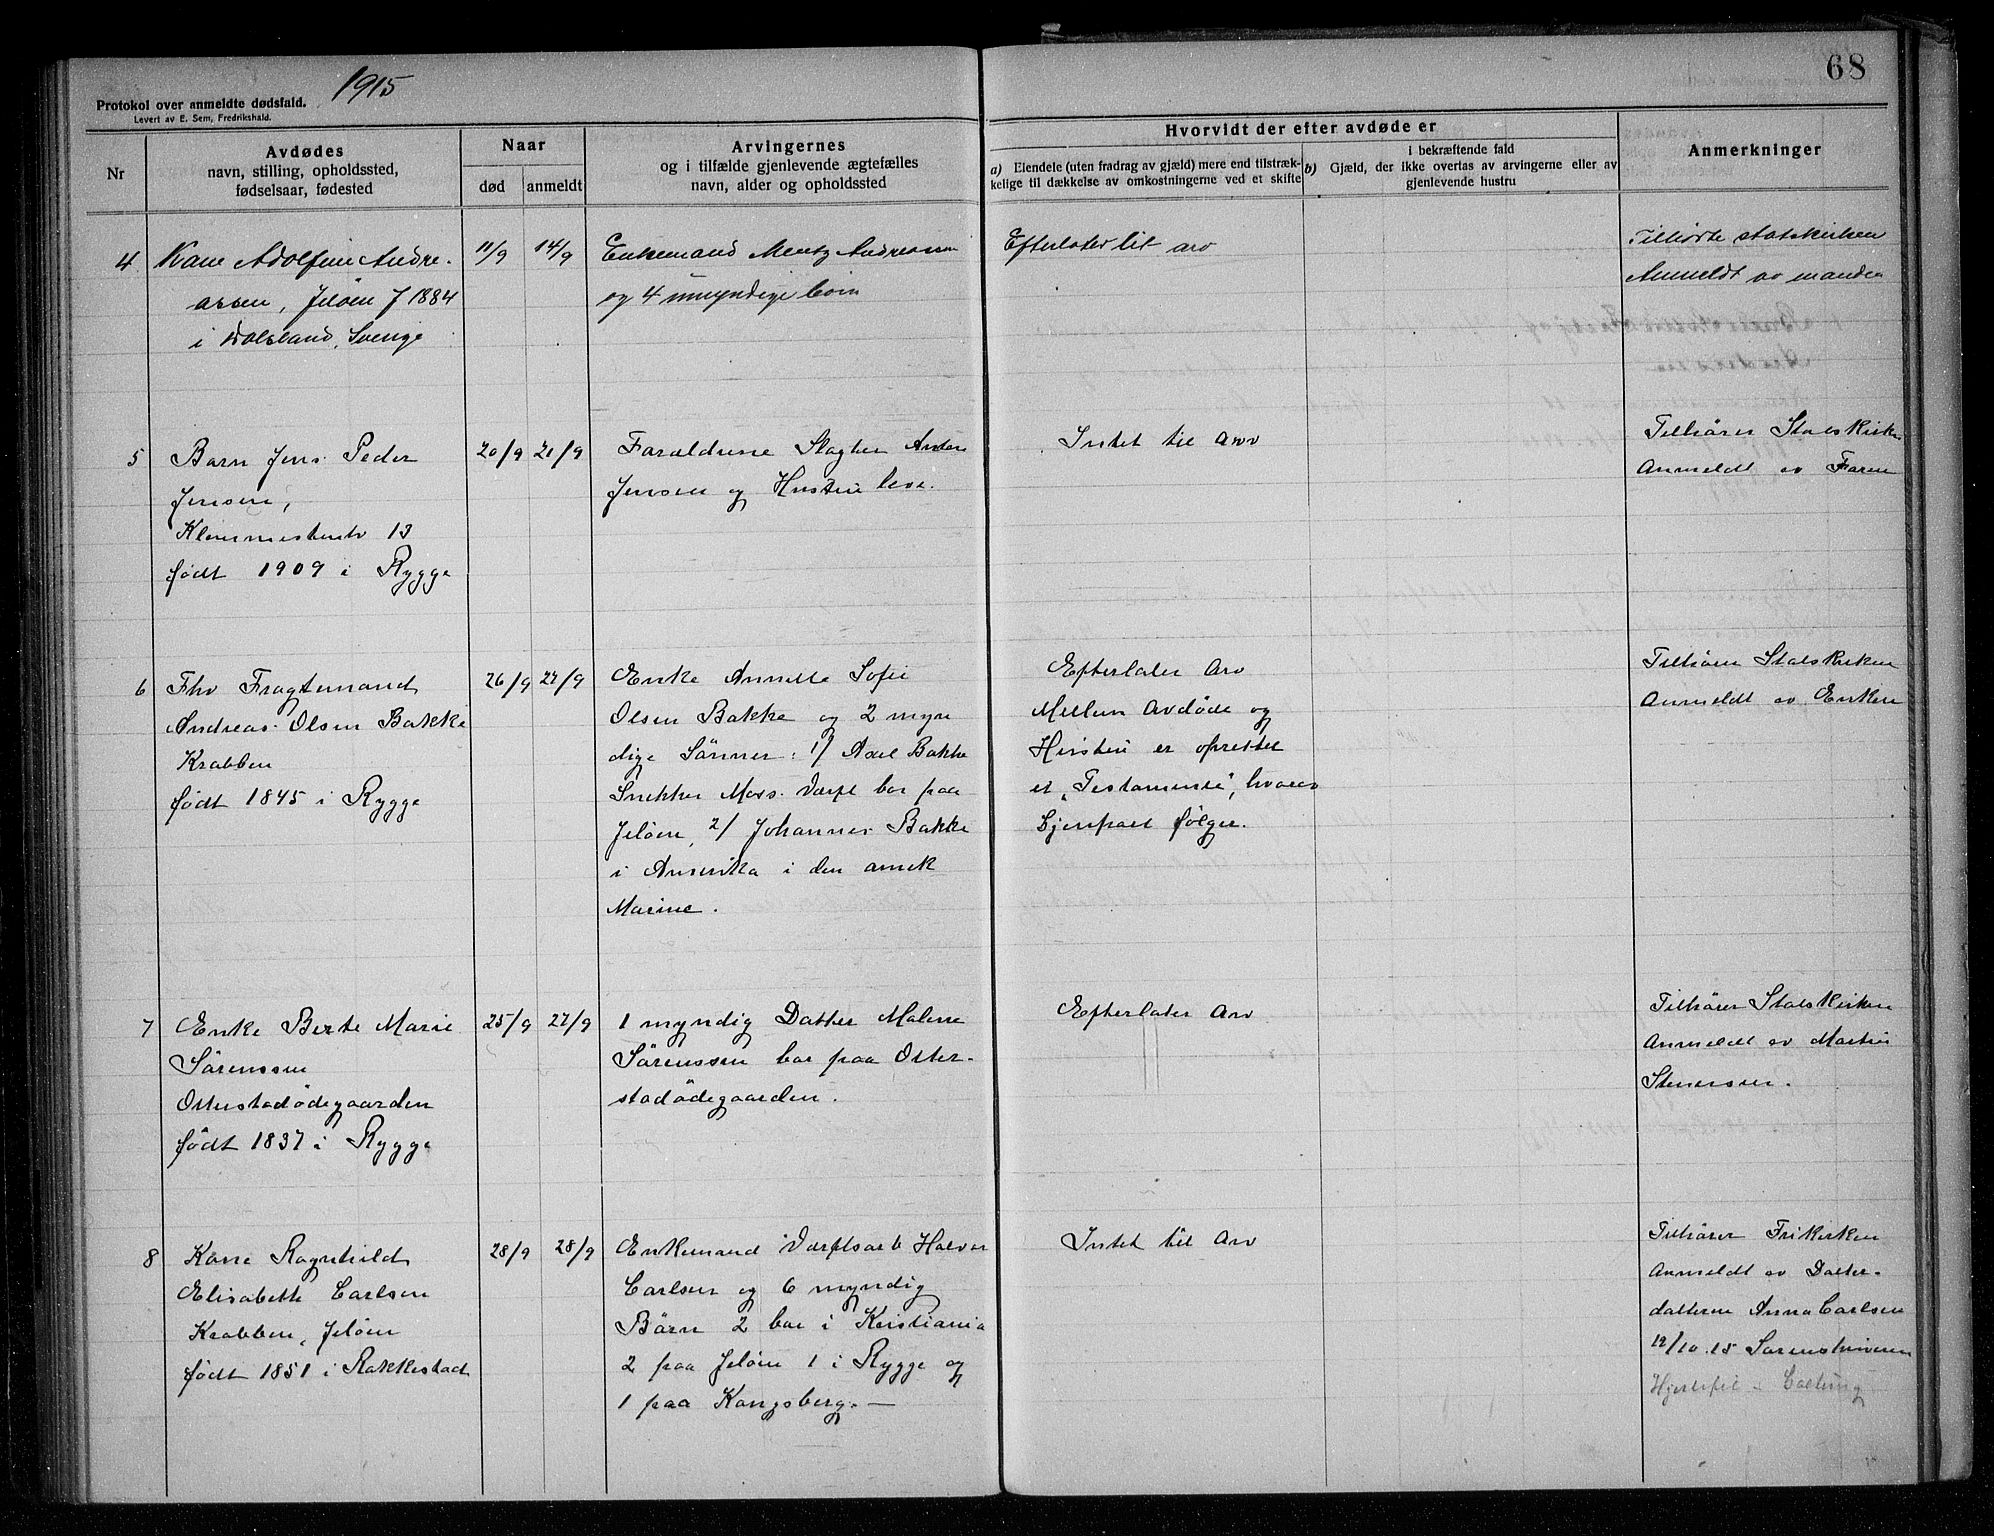 1915
68
Protokol over anmeldte dødsfald.
Levert av E. Sem, Fredrikshald.
Nr
Avdødes
navn, stilling, opholdssted,
fødselsaar, fødested
Naar
død
anmeldt
Arvingernes
og i tilfælde gjenlevende ægtefælles
navn, alder og opholdssted
Hvorvidt der efter avdøde er
a) Eiendele (uten fradrag av gjæld) mere end tilstræk-
kelige til dækkelse av omkostningerne ved et skifte
i bekræftende fald
b) Gjæld, der ikke overtas av arvingerne eller av
gjenlevende hustru
Anmerkninger
4
Kone Adolfine Andre-
assen, Jeløen f 1884
i Dalsland, Sverige
11/9
14/9
Enkemand Mentz Andreassen
og 4 umyndige børn
Efterlater lit arv
Tilhørte statskirken
Anmeldt av manden
5
Barn Jens Peder
Jensen,
13
født 1909 i Rygge
20/9
21/9
Forældrene Slagter Anton
Jensen og Hustru leve.
Intet til Arv
Tilhører Statskirken
Anmeldt av Faren
6
Fhv Fragtemand
Andreas Olsen Bakke
Krabben
født 1845 i Rygge
26/9
27/9
Enke Annette Sofie
Olsen Bakke og 2 myn
dige Sønner: 1/ Axel Bakke
Snekker Moss Værft bor paa
Jeløen, 2/ Johannes Bakke
i Amerika i den amek
Marine.
Efterlater Arv
Mellem Avdøde og
Hustru er oprettet
et "Testamente", hvorav
Gjenpart følger.
Tilhører Statskirken
Anmeldt av Enken
7
Enke Berte Marie
Sørenssen
Osterstadødegaarden
født 1837 i Rygge
25/9
27/9
1 myndig Datter Malene
Sørenssen bor paa Oster-
stadødegaarden.
Efterlater Arv
Tilhører Statskirken
Anmeldt av Martin
Stenersen.
8
Kone Ragnhild
Elisabeth Carlsen
Krabben, Jeløen
født 1851 i Rakkestad
28/9
28/9
Enkemand Værftsarb Halvor
Carlsen og 6 myndig
Børn 2 bor i Kristiania
2 paa Jeløen 1 i Rygge og
1 paa Kongsberg. —
Intet til Arv
Tilhører Frikirken
Anmeldt av Datter-
datteren Anna Carlsen
12/10.15 Sorenskriveren